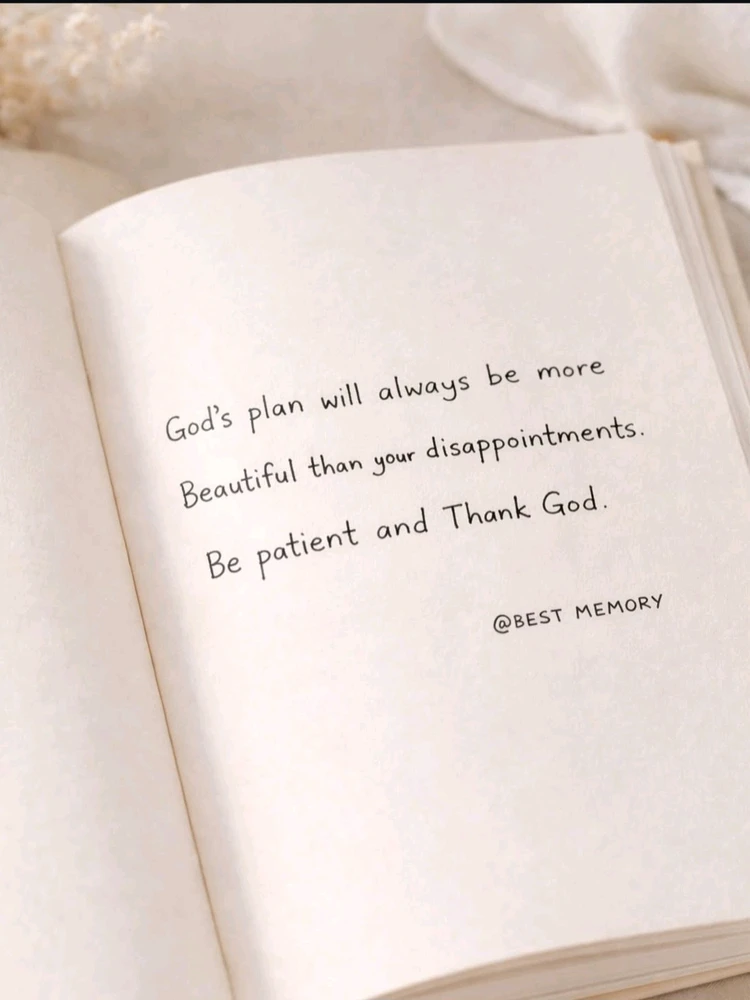 God's plan will always be more
Beautiful than your disappointments.
Be patient and Thank God.
@BEST MEMORY